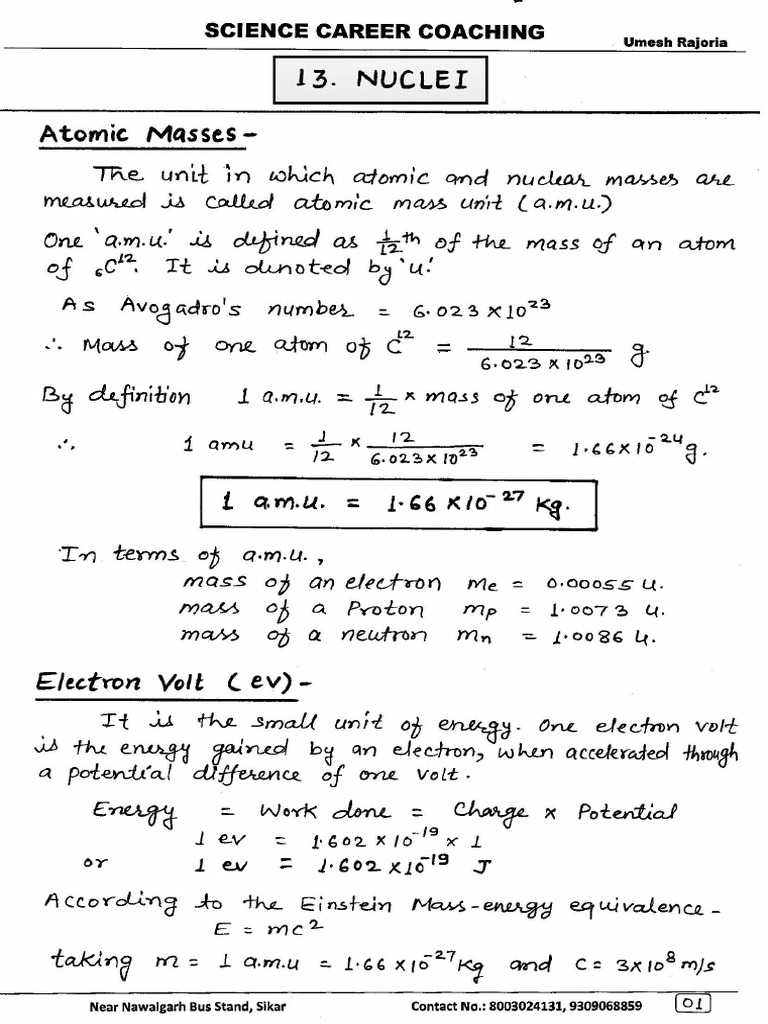 SCIENCE CAREER COACHING
Umesh Rajoria
13. NUCLEI
Atomic Masses -
The unit in which atomic and nuclear masses are
measured is called atomic mass unit (a.m.u.)
One 'a.m.u.' is defined as 1/12th of the mass of an atom
of ₆C¹². It is denoted by 'u.'
As Avogadro's number = 6.023 × 10²³
∴ Mass of one atom of C¹² = 12 / 6.023 × 10²³ g.
By definition 1 a.m.u. = 1/12 × mass of one atom of C¹²
∴ 1 amu = 1/12 × 12 / 6.023 × 10²³ = 1.66 × 10⁻²⁴ g.
1 a.m.u. = 1.66 × 10⁻²⁷ Kg.
In terms of a.m.u.,
mass of an electron me = 0.00055 u.
mass of a Proton mp = 1.0073 u.
mass of a neutron mn = 1.0086 u.
Electron Volt (ev) -
It is the small unit of energy. One electron volt
is the energy gained by an electron, when accelerated through
a potential difference of one volt.
Energy = Work done = Charge × Potential
1 ev = 1.602 × 10⁻¹⁹ × 1
or 1 ev = 1.602 × 10⁻¹⁹ J
According to the Einstein Mass-energy equivalence -
E = mc²
taking m = 1 a.m.u = 1.66 × 10⁻²⁷ Kg and C = 3 × 10⁸ m/s
Near Nawalgarh Bus Stand, Sikar Contact No.: 8003024131, 9309068859 01